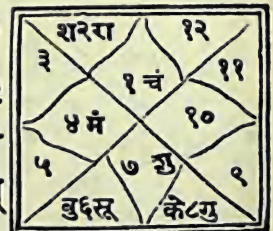 श२रा १२
३ ११
१ चं
४ मं १०
५ ७ शु ९
बु६सू के८गु